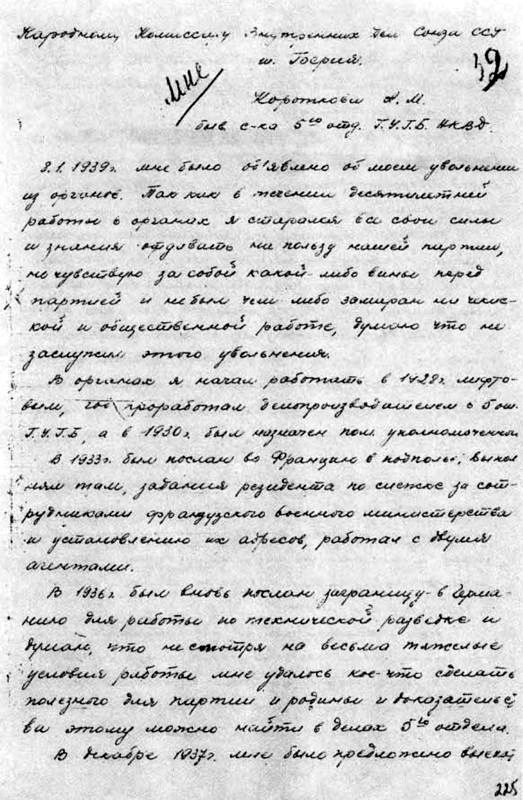 Народному Комиссару Внутренних Дел Союза ССР
т. Берия.
мне
42
Короткова А. М.
быв с-ка 5го отд. Г.У.Г.Б. НКВД.
8.I.1939г. мне было объявлено об моем увольнении
из органов. Так как в течении десятилетней
работы в органах я старался все свои силы
и знания отдавать на пользу нашей партии,
не чувствую за собой какой-либо вины перед
партией и не был чем либо замаран на чекис-
кой и общественной работе, думаю что не
заслужил этого увольнения.
В органах я начал работать в 1928г. лифто-
вым, проработал делопроизводителем в 5 от.
Г.У.Г.Б, а в 1930г. был назначен пом. уполномоченн
В 1933г. был послан во Францию в подполье, выпол-
нял там, задания резидента по слежке за сот-
рудниками французского военного министерства
и установлению их адресов, работал с двумя
агентами.
В 1936г. был вновь послан заграницу в Герма-
нию для работы по технической разведке и
думаю, что несмотря на весьма тяжелые
условия работы мне удалось кое-что сделать
полезного для партии и родины и доказательс
ва этому можно найти в делах 5го отдела.
В декабре 1937г. мне было предложено выехат
225